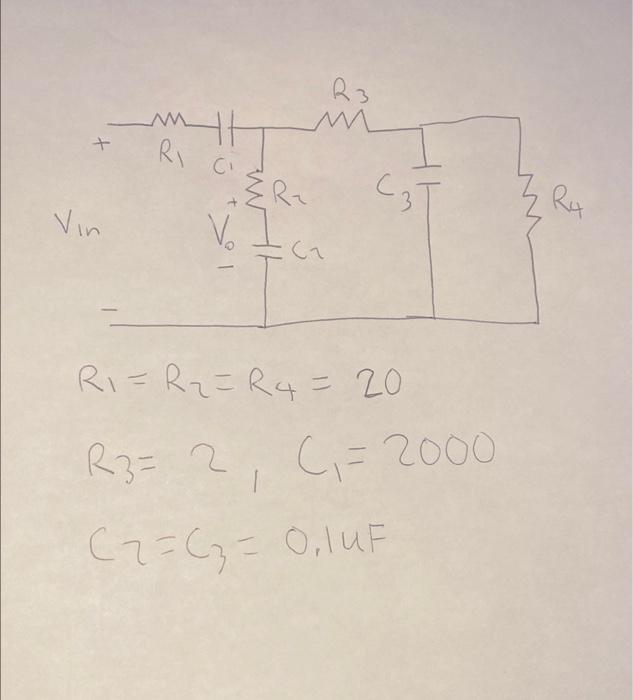 R3
+ R1 C1
+ R2 C3 R4
Vin Vo C2
-
-
R1 = R2 = R4 = 20
R3 = 2, C1 = 2000
C2 = C3 = 0.1uF